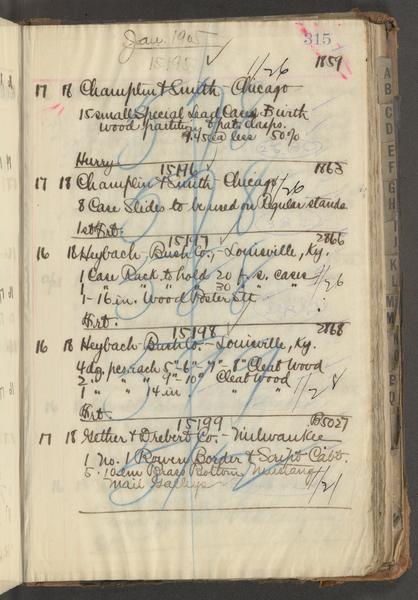 Jan. 1905
315
15195
1/26
1859
17 18 Champlin & Smith - Chicago
15 small Special Lead Cases 5 with
wood partition & pat. clasps.
9.45 ea less 50%
Hurry
15196
1863
17 18 Champlin & Smith Chicago
1/26
8 Case Slides to be used on Regular stands
1st Frt.
15197
2866
16 18 Heybach-Bush Co., - Louisville, Ky.
1 Case Rack to hold 20 f.s. cases
1/26
1 " " " " 30 " "
1 - 16 in. Wood Poster Stk
Frt.
15198
2868
16 18 Heybach Bush Co. - Louisville, Ky.
4 dz. per. each 5"-6"- 7"- 8" Cleat Wood
2 " " " 9"-10" Cleat Wood
1 " " 14 in " "
1/28
Frt.
15199
B5027
17 18 Gether & Drebert Co. - Milwaukee
1 No. 1 Rowen Border & Script Cabt.
5 10 em Brass Bottom Mustang
Mail Galleys
1/21
A
B
C
D
E
F
G
H
I
J
K
L
M